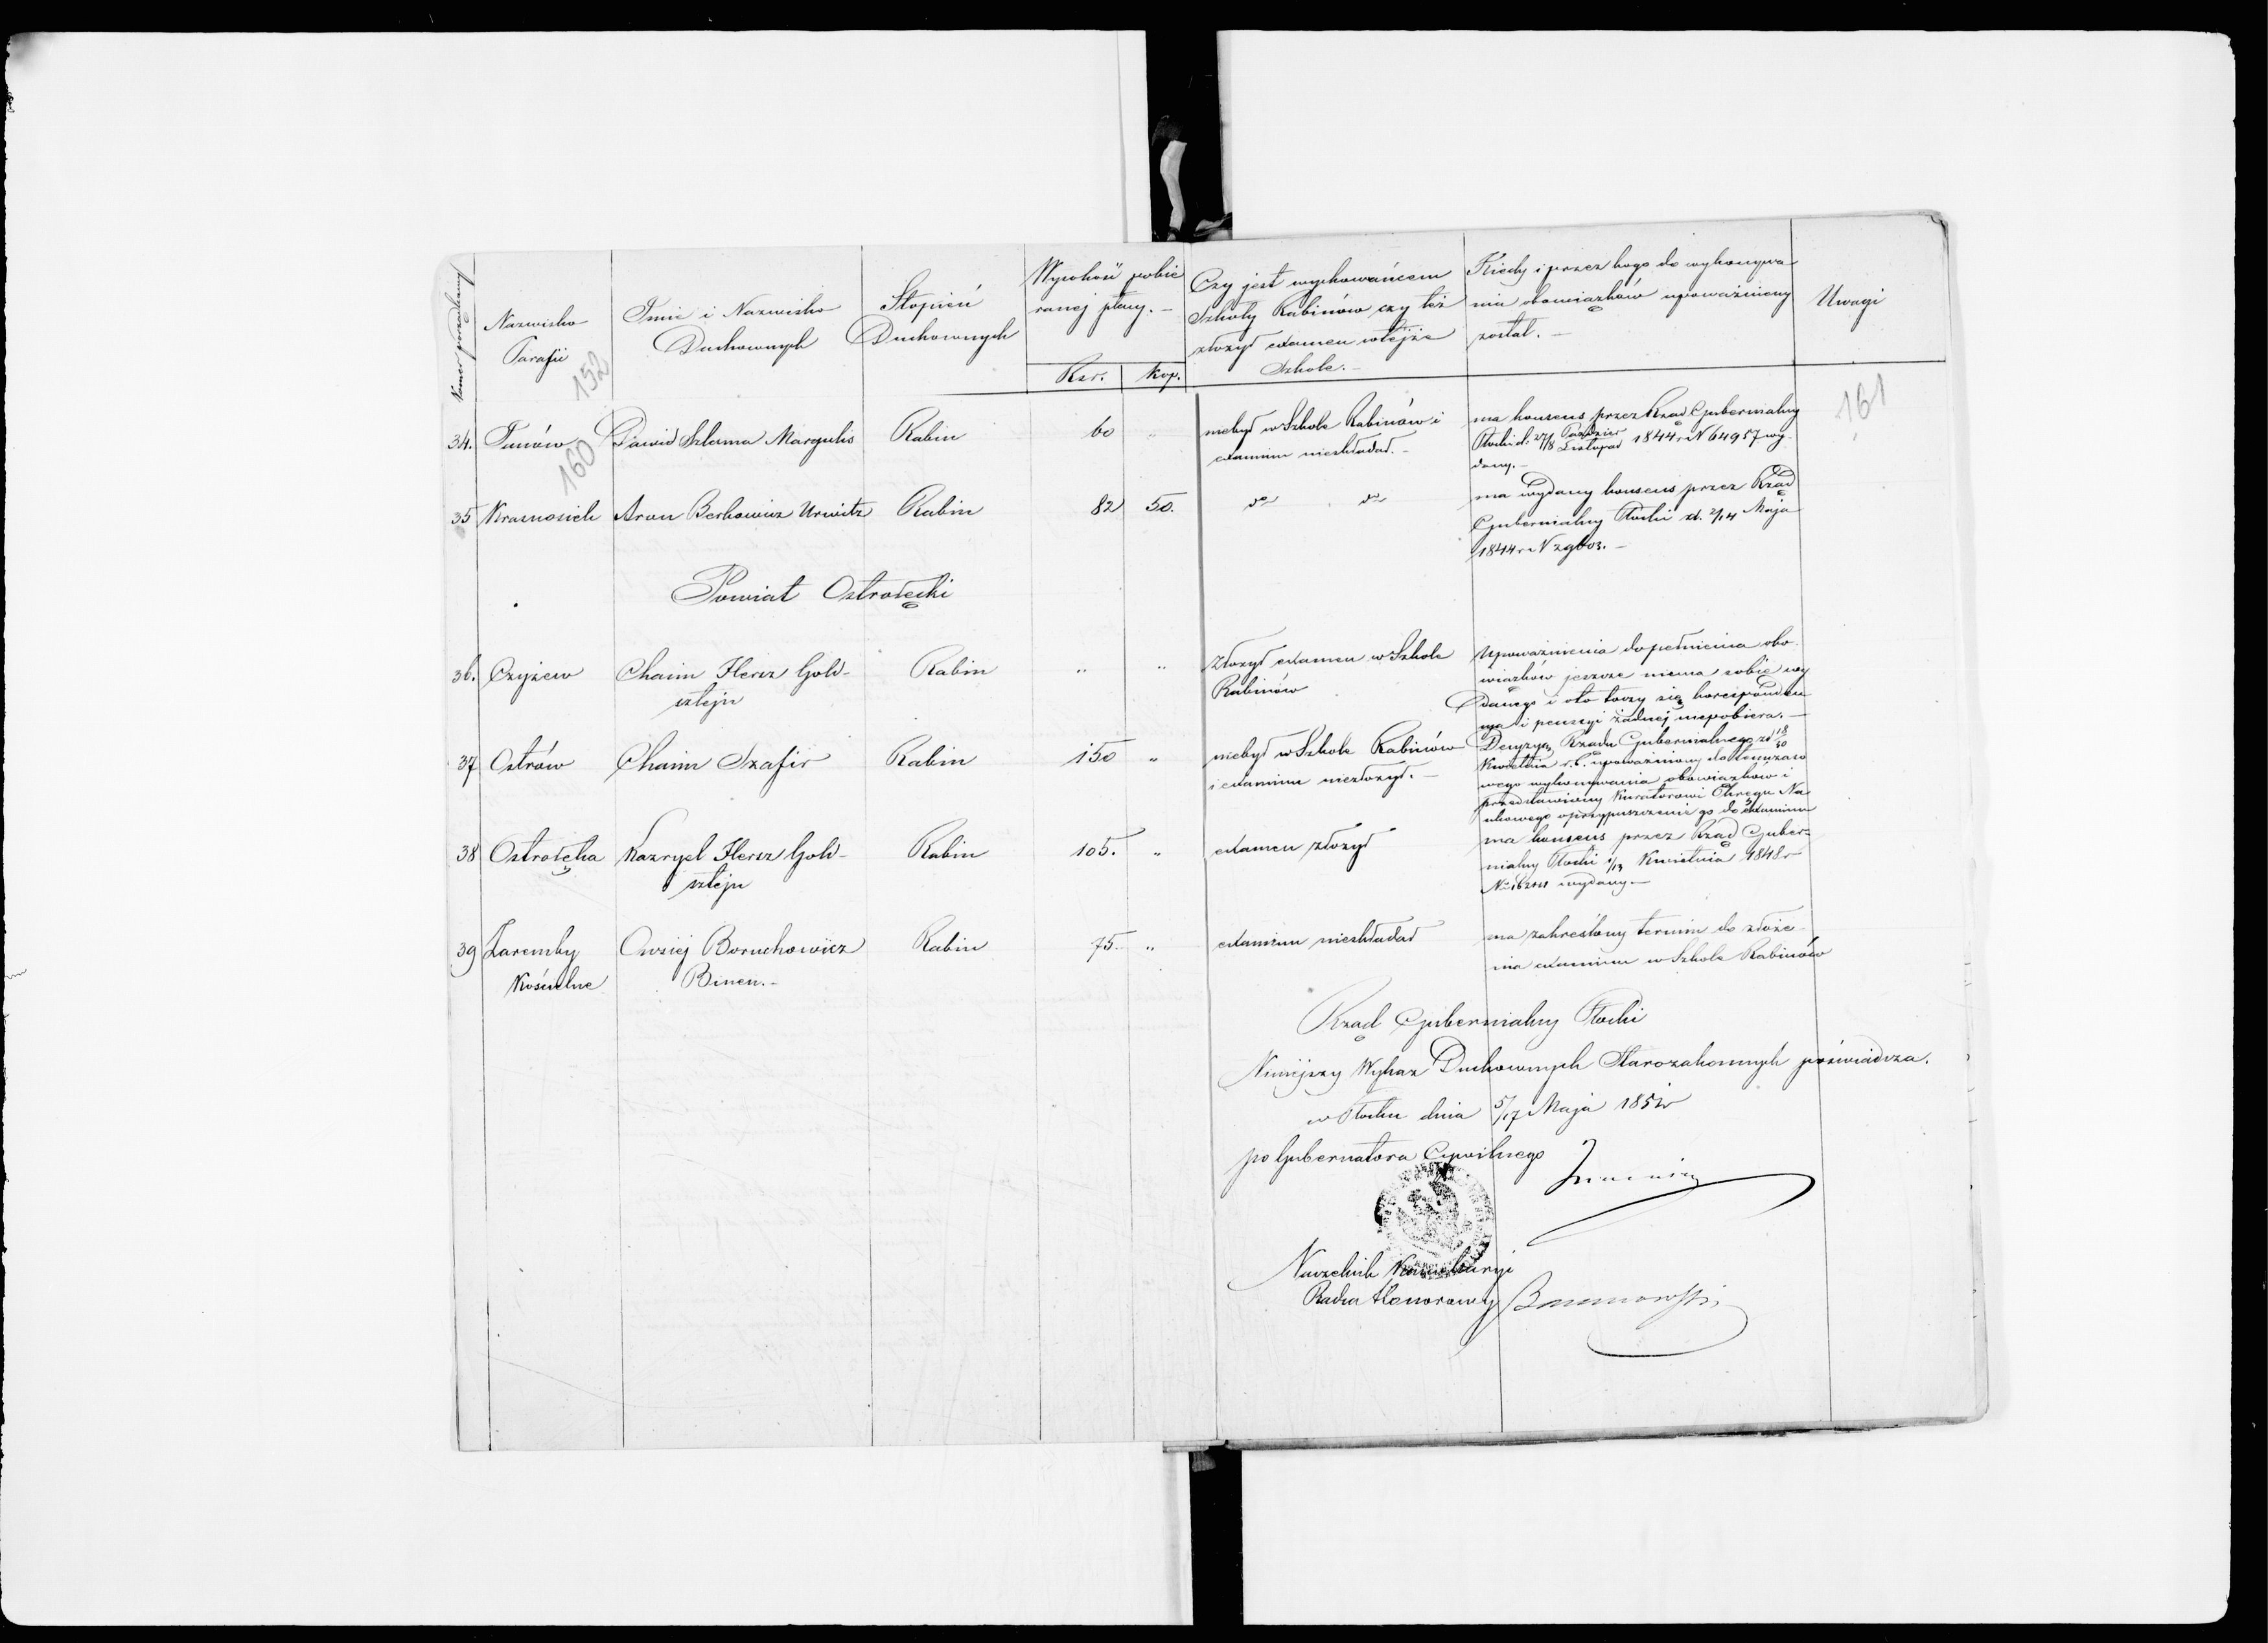 Numer porządkowy
Nazwisko
Parafii
Imie i Nazwisko
Duchownych
Stopień
Duchownych
Wysokość pobie
ranej płacy. —
Rsr. kop.
Czy jest wychowańcem
Szkoły Rabinów czy też
złożył examen w tejże
Szkole. —
Kiedy i przez kogo do wykonywa
nia obowiązków upoważniony
został. —
Uwagi
152
160
161
34. Janów Dawid Szlama Margulis Rabin 60 "
niebył w Szkole Rabinów i
examinu nieskładał. —
ma konsens przez Rząd Gubernialny
Płocki d. 27/8 Paździer/Listopad 1844 r N 64957 wy-
dany. —
35 Krasnosielc Aron Berkowicz Urwitz Rabin 82 50.
do do
ma wydany konsens przez Rząd
Gubernialny Płocki d. 2/14 Maja
1844 r N —
Powiat Ostrołęcki
36. Czyżew Chaim Hersz Gold-
sztejn
Rabin " "
Złożył examen w Szkole
Rabinów
Upoważnienia do pełnienia obo-
wiązków jeszcze niema sobie wy
danego i oto toczy się koresponden
cya i pensyi żadnej niepobiera. —
37 Ostrów Chaim Szafir Rabin 150 "
niebył w Szkole Rabinów
i examinu niezłożył. —
Decyzyą Rządu Gubernialnego zd 18/30
Kwietnia r. b. upoważniony do tymczaso
wego wykonywania obowiązków i
przedstawiony Kuratorowi Okręgu Na
ukowego o przypuszczenie go do examinu
38 Ostrołęka Kazryel Hersz Gold-
sztejn
Rabin 105. "
examen złożył
ma konsens przez Rząd Guber-
nialny Płocki 1/13 Kwietnia 1848 r
wydany —
39 Zaremby
Kościelne
Owsiej Boruchowicz
Binen. —
Rabin 75. "
examinu nieskładał
ma zakreślony termin do złoże-
nia examinu w Szkole Rabinów
Rząd Gubernialny Płocki
Niniejszy Wykaz Duchownych Starozakonnych poświadcza.
w Płocku dnia 5/17 Maja 1852 r
po Gubernatora Cywilnego
Naczelnik Kancellaryi
Radca Honorowy